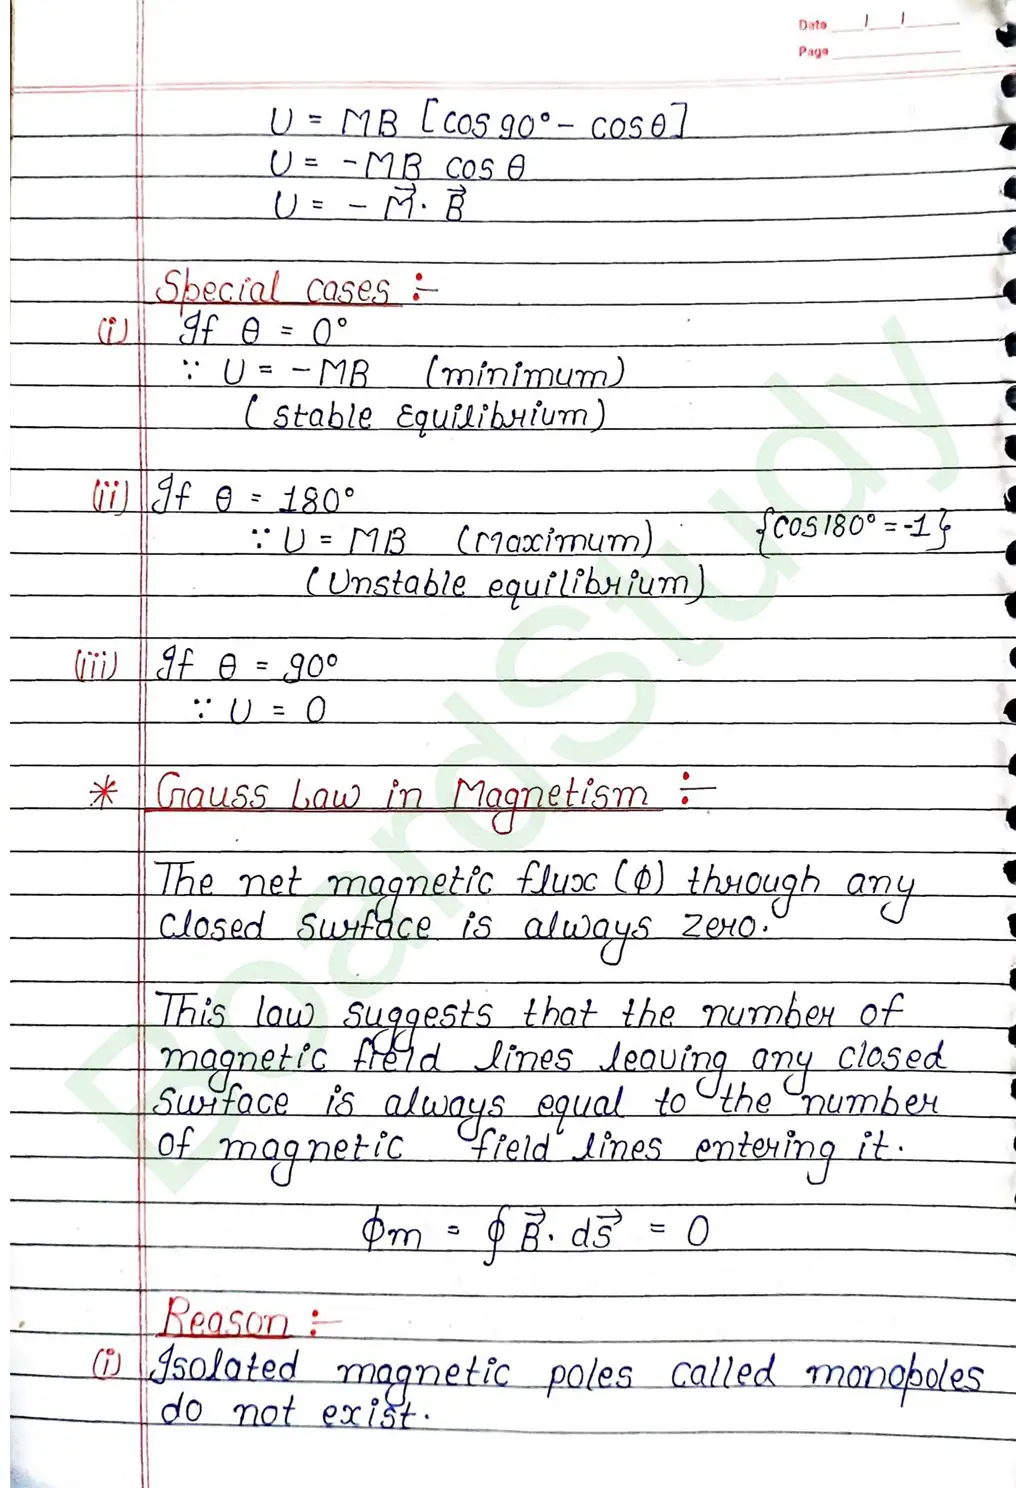 Date
Page
U = MB [cos 90° - cosθ]
U = -MB cos θ
U = - M⃗ . B⃗
Special cases :-
(i) If θ = 0°
∵ U = -MB (minimum)
(stable Equilibrium)
(ii) If θ = 180°
∵ U = MB (Maximum) {cos180° = -1}
(Unstable equilibrium)
(iii) If θ = 90°
∵ U = 0
* Gauss Law in Magnetism :-
The net magnetic flux (Φ) through any
closed surface is always zero.
This law suggests that the number of
magnetic field lines leaving any closed
surface is always equal to the number
of magnetic field lines entering it.
ϕm = ∮ B⃗. dS⃗ = 0
Reason :-
(i) Isolated magnetic poles called monopoles
do not exist.
BoardStudy